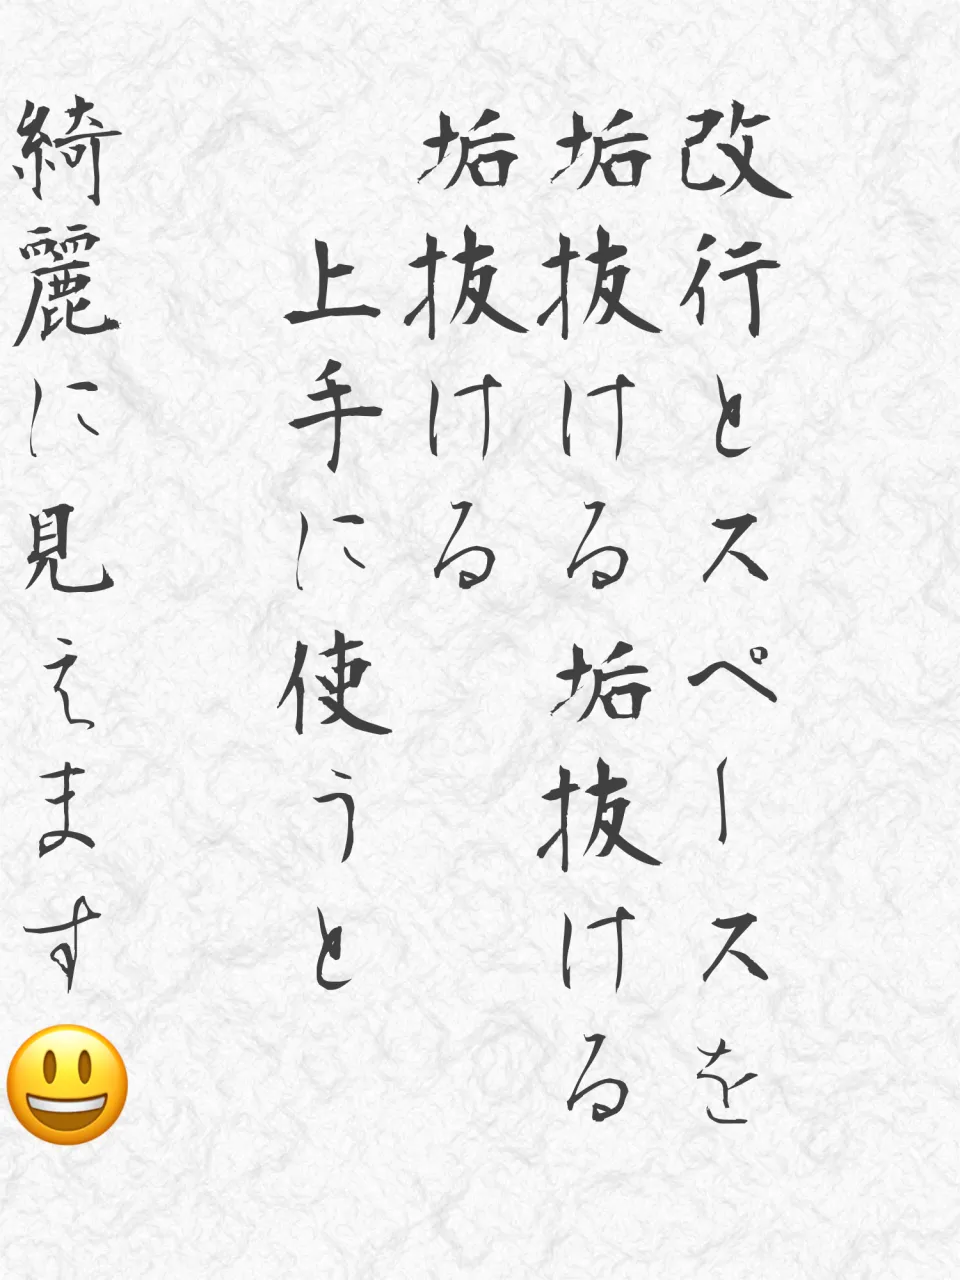 改行とスペースを
垢抜ける垢抜ける
垢抜ける
上手に使うと
綺麗に見えます😃